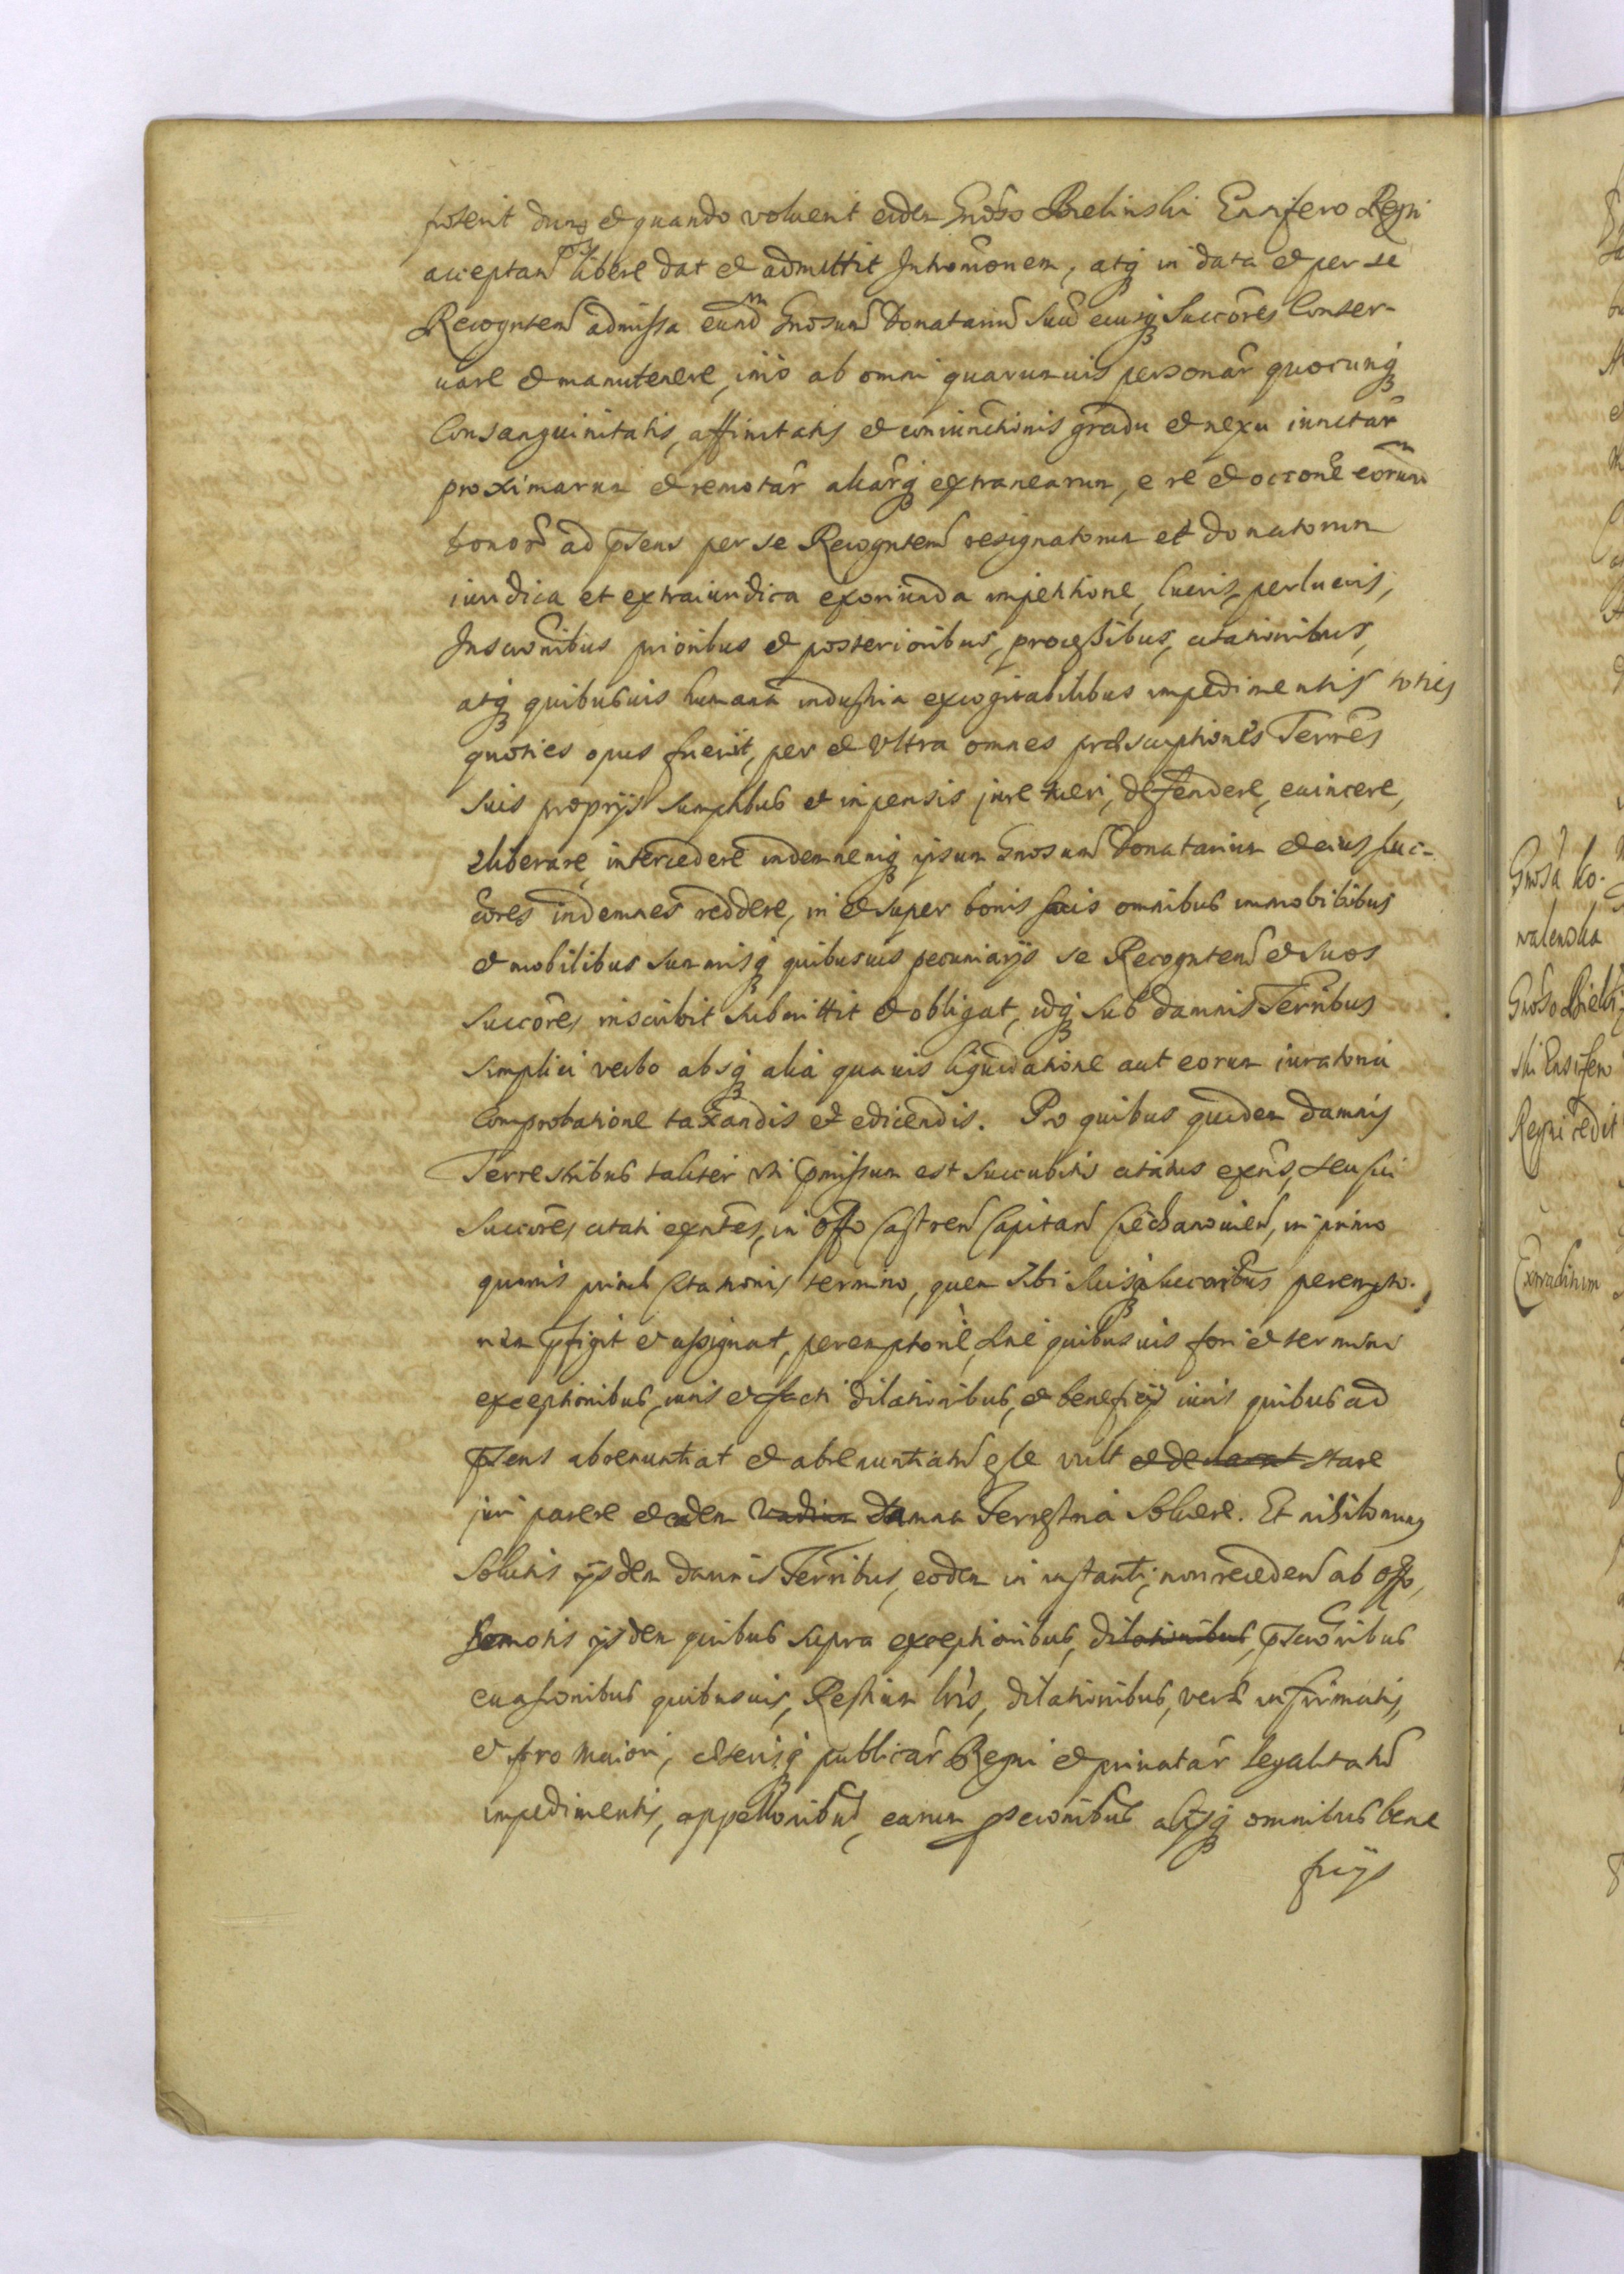 poterit dum et quando voluerit eidem Gnoso Bielinski Ensifero Regni
acceptan libere dat et admittit Intromonem, atq in data et per se
Recognten admissa eund Gnosum Donatarium suu eiusq Succores Conser-
uare et manutenere, imo ab omni quarumuis personar quocunq
Consanguinitatis, affinitatis et coniunctionis gradu et nexu iunctar
proximarum et remotar aliarq extranearum, e re et occone eorund
bonor ad psens per se Recognten resignatorum et donatorum
iuridica et extraiuridica exoriunda impetitione, lucris, perlucris,
Inscronibus prioribus et posterioribus, processibus, citationibus,
atq quibusuis humana industria excogitabilibus impedimentis toties
quoties opus fuerit, per et vltra omnes præscriptiones Terres
suis proprijs sumptibus et inpensis jure tueri, defendere, euincere,
eliberare, intercedere indemnemq ipsum Gnosum Donatarium et eius Suc-
cores indemnes reddere, in et super bonis suis omnibus immobilibus
et mobilibus summisq quibusuis pecuniarijs se Recognten et suos
succores inscribit submittit et obligat, idq sub damnis Terribus
simplici verbo absq alia quauis liquidatione aut eorum iuratoria
Comprobatione taxandis et edicendis. Pro quibus quidem damnis
Terrestribus taliter vti pmissum est succubitis citatus exns, seu sui
Succores citati exntes, in offo Castren Capitan Ciechanouien, in primo
quouis simil Citationis termino, quem sibi suisq succoribus perempto-
rium pfigit et assignat, peremptorie, sine quibusuis fori et termini
exceptionibus, iuris et facti dilationibus, et beneficijs iuris quibus ad
psens abrenuntiat et abrenuntiatu esse vult et declarat stare
juri parere et eadem vadium damna Terrestria soluere. Et nihilominus
solutis ijsdem damnis Terribus, eodem in instanti, non receden ab offo,
Semotis ijsdem quibus supra exceptionibus, dilationibus, pscronibus
euasionibus quibusuis, Restium lris, dilationibus, veræ infirmatis,
et pro maiori, cæterisq publicar Regni et priuatar legalitatu
impedimentis, appellonibus, earum psecronibus alijsq omnibus bene
ficijs
Gnosa Ko-
walewska
Gnoso Bieli
ski Ensifero
Regni cedit
Extraditum